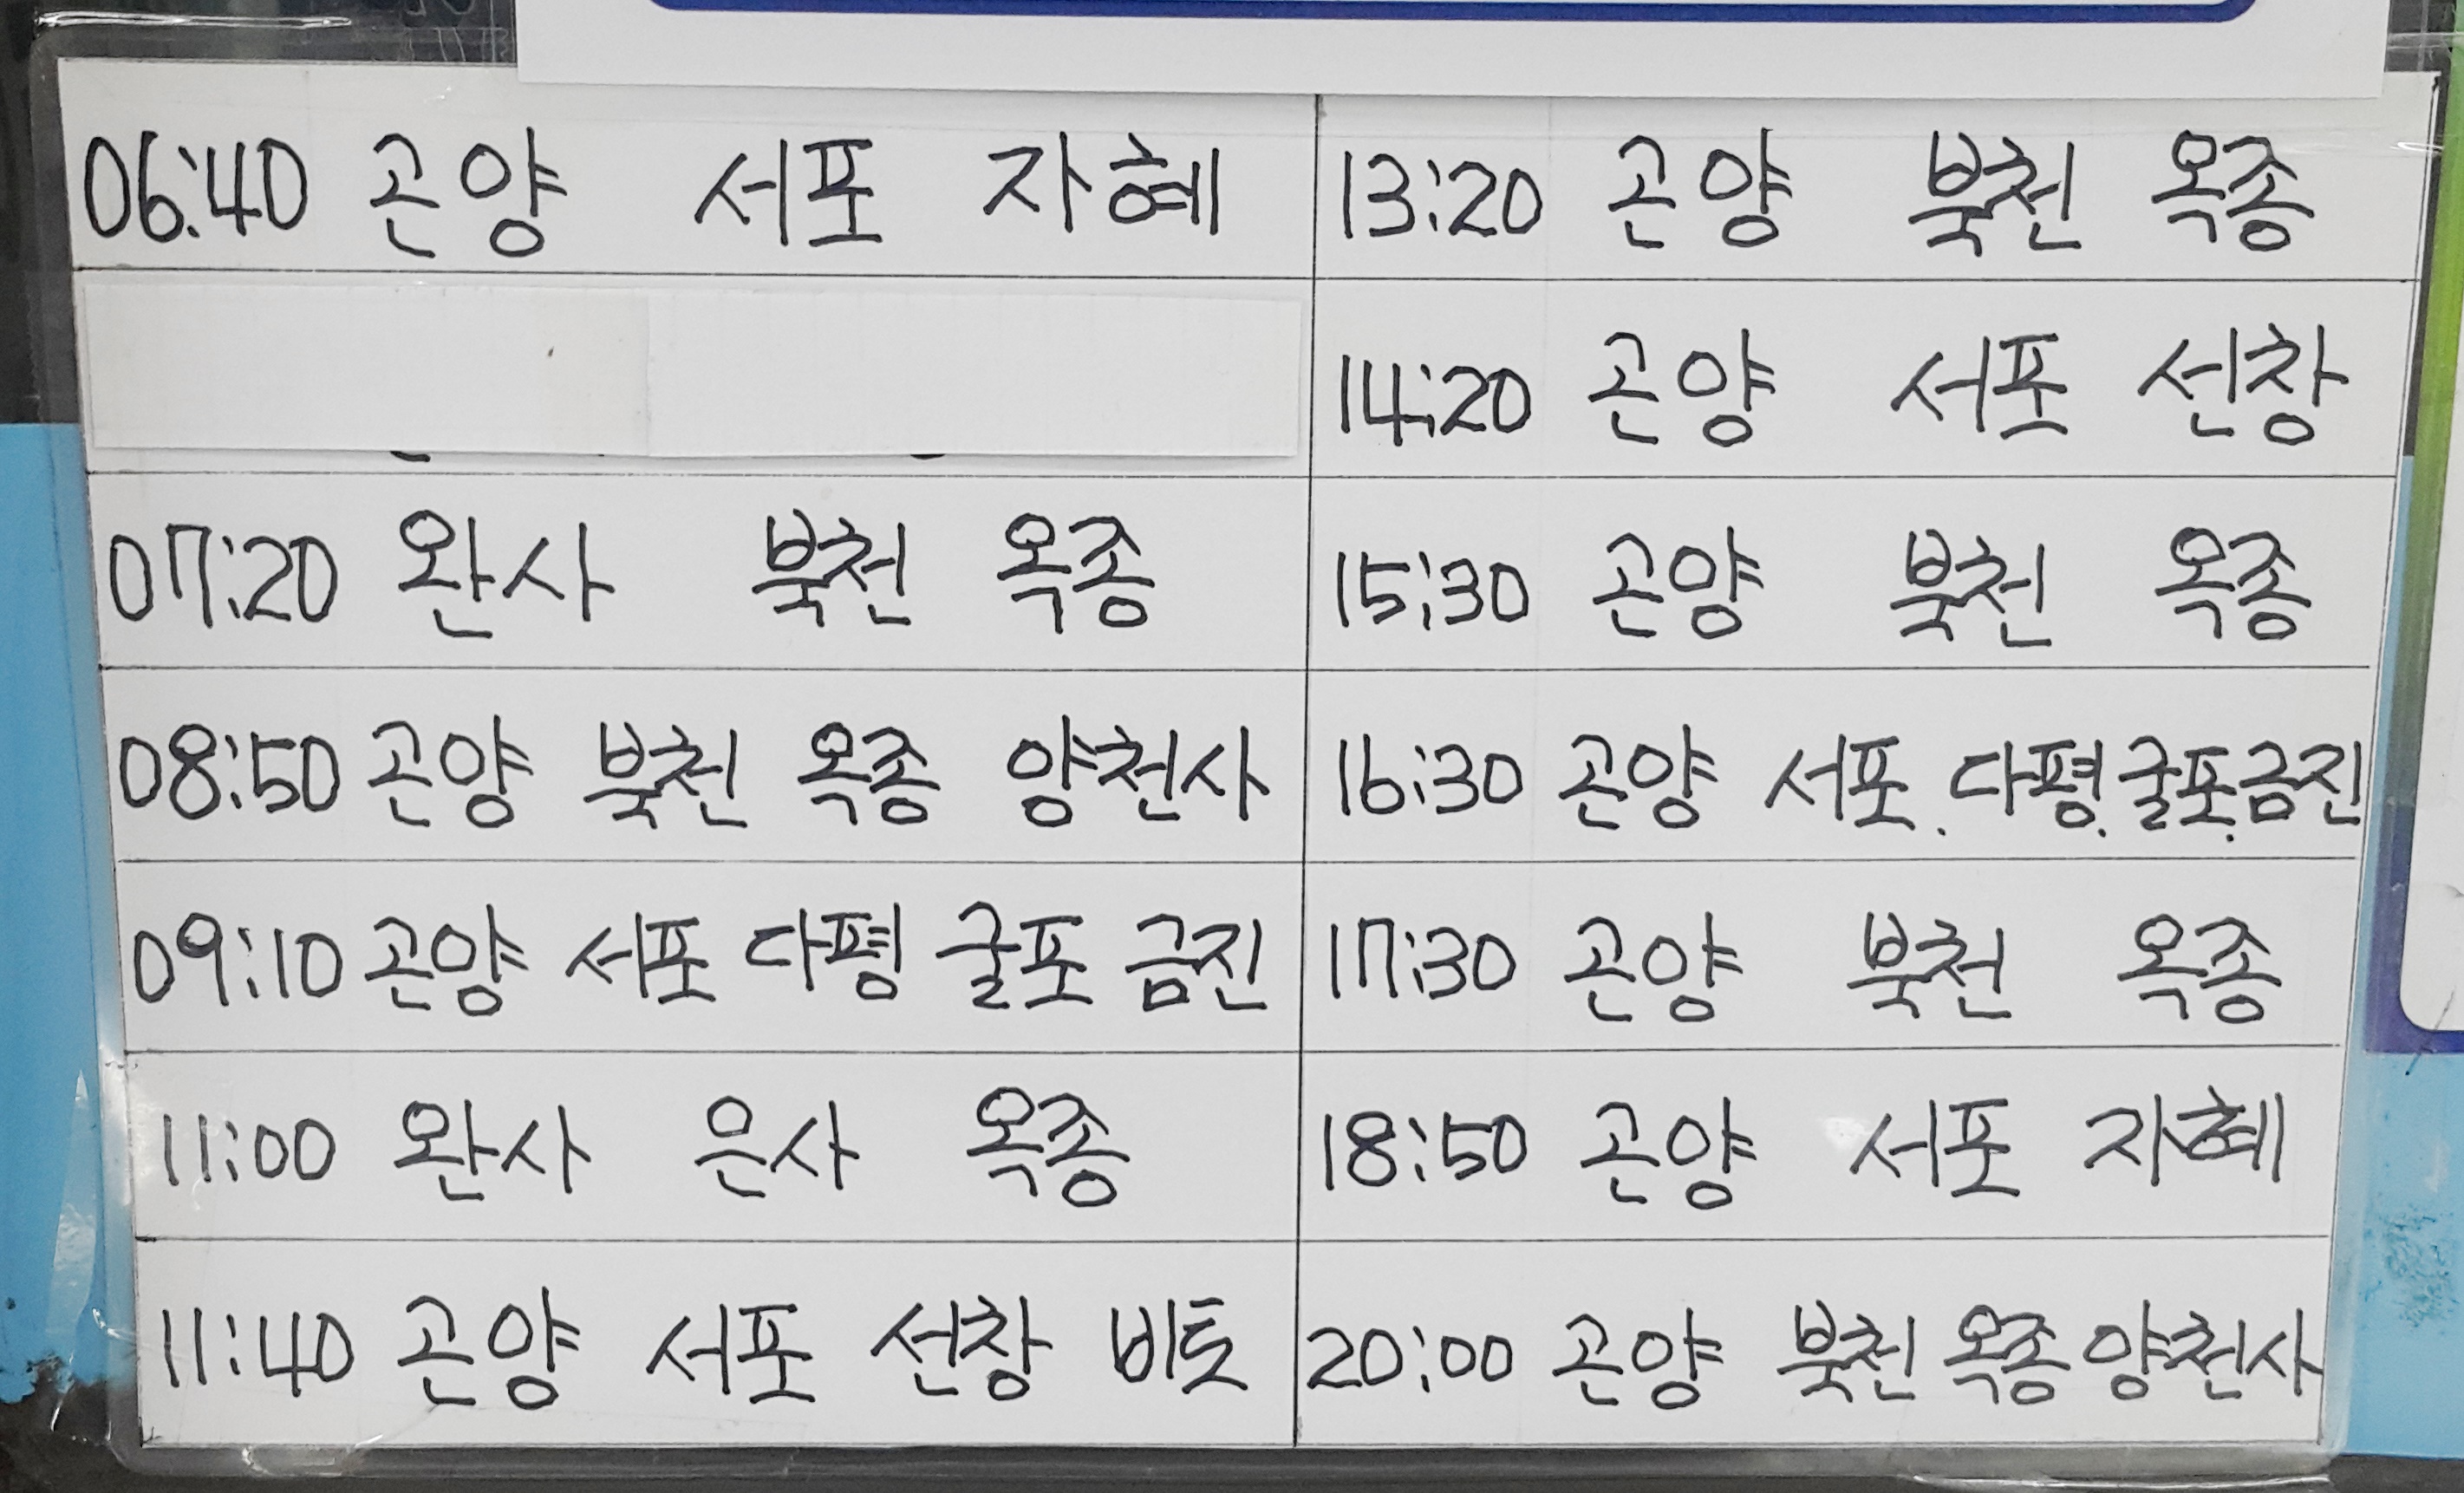 06:40 곤양 서포 자혜
07:20 완사 북천 옥종
08:50 곤양 북천 옥종 양천사
09:10 곤양 서포 다평 굴포 금진
11:00 완사 은사 옥종
11:40 곤양 서포 선창 비토
13:20 곤양 북천 옥종
14:20 곤양 서포 선창
15:30 곤양 북천 옥종
16:30 곤양 서포. 다평. 굴포. 금진
17:30 곤양 북천 옥종
18:50 곤양 서포 자혜
20:00 곤양 북천 옥종 양천사